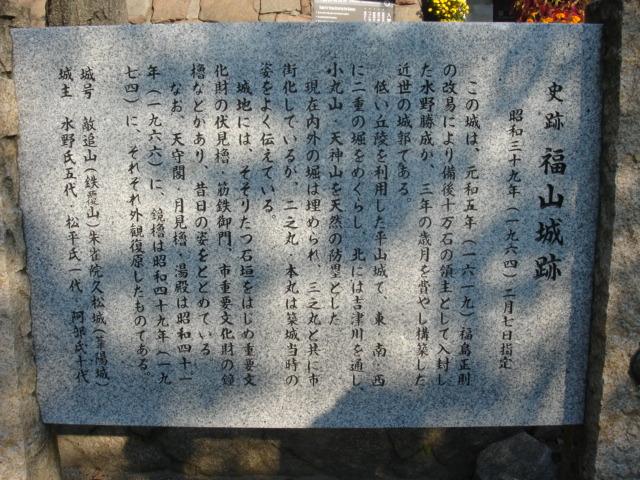 史跡 福山城跡
昭和三十九年(一九六四)二月七日指定
この城は、元和五年(一六一九)福島正則
の改易により備後十万石の領主として入封し
た水野勝成が、三年の歳月を費やし構築した
近世の城郭である。
低い丘陵を利用した平山城で、東 南 西
に二重の堀をめぐらし 北には吉津川を通し、
小丸山・天神山を天然の防塁とした
現在内外の堀は埋められ、三之丸と共に市
街化しているが、二之丸・本丸は築城当時の
姿をよく伝えている。
城地には、そそりたつ石垣をはじめ重要文
化財の伏見櫓・筋鉄御門、市重要文化財の鐘
櫓などがあり、昔日の姿をとどめている
なお、天守閣 月見櫓・湯殿は昭和四十一
年(一九六六)に、鏡櫓は昭和四十九年(一九
七四)に、それぞれ外観復原したものである。
城号 敵追山(鉄覆山)朱雀院久松城(葦陽城)
城主 水野氏五代 松平氏一代 阿部氏十代